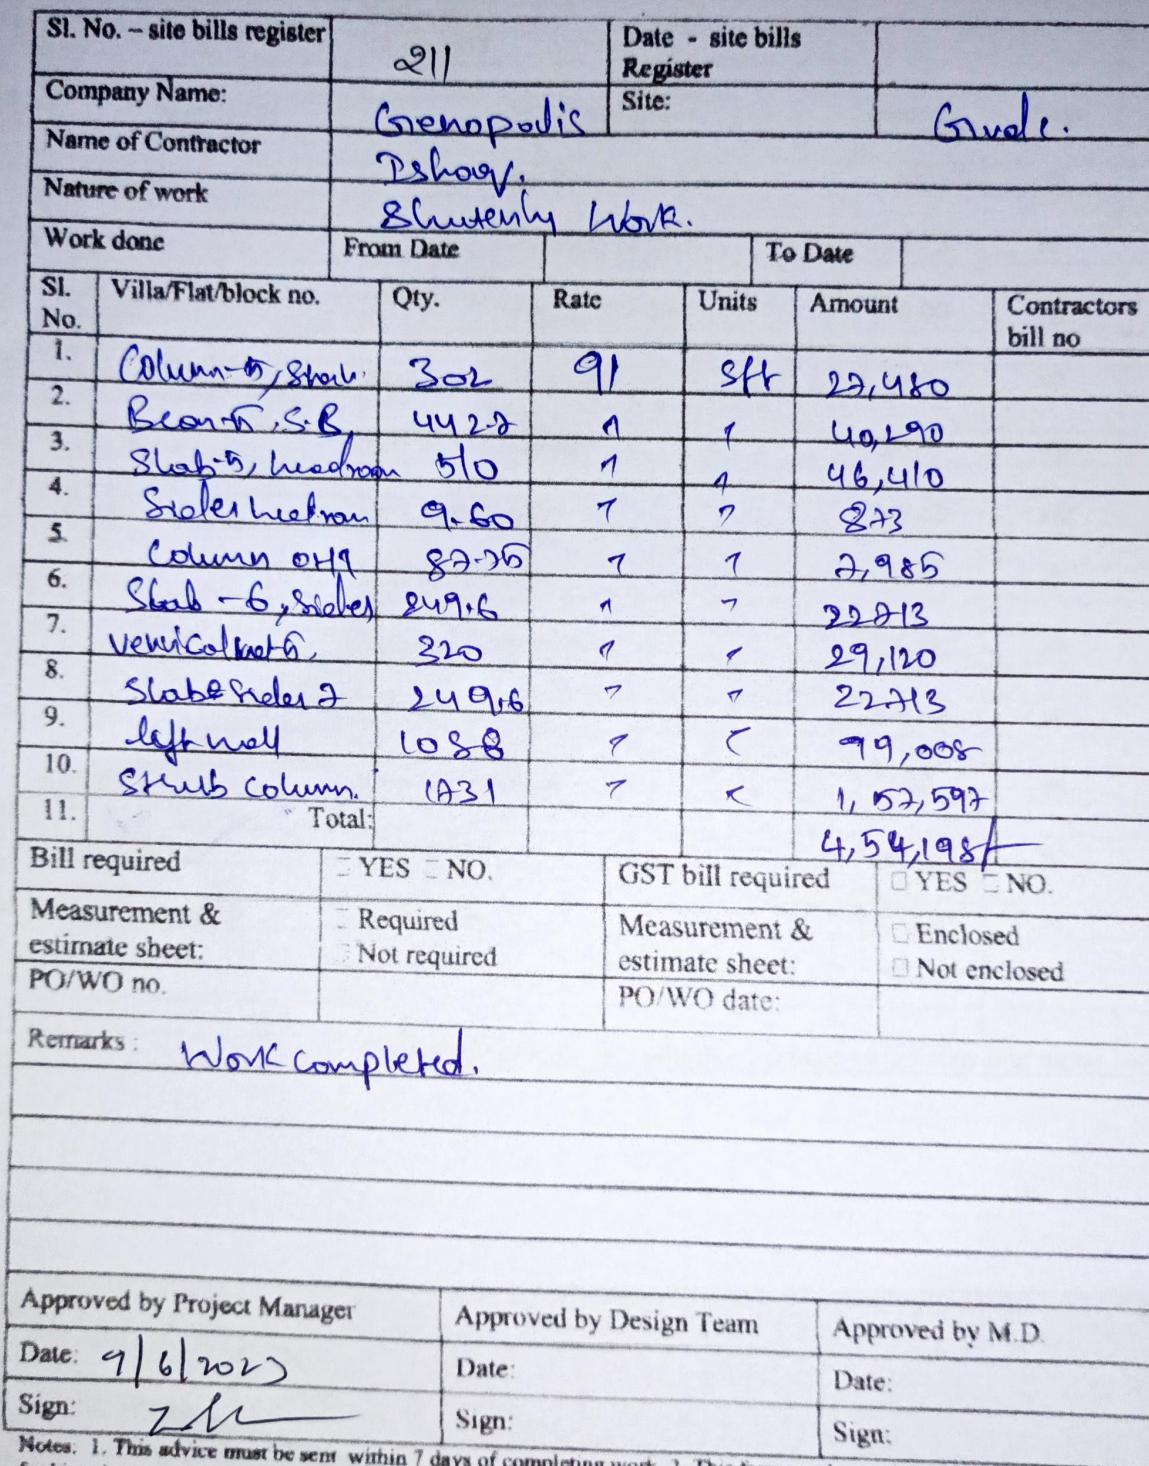 Sl. No. – site bills register 211 Date - site bills Register
Company Name: Genopodis Site: Gvdc.
Name of Contractor
Nature of work Work.
Work done From Date To Date
Sl. No. Villa/Flat/block no. Qty. Rate Units Amount Contractors bill no
1. Column-5, 302 91 sft 27,480
2. S.B, 442.7 " " 40,290
3. Slab-5, headroom 510 " " 46,410
4. 9.60 " " 873
5. Column OHT 87.75 " " 7,985
6. Slab - 6, Sides 249.6 " " 22713
7. 320 " " 29,120
8. Slab & Sides 7 249.6 " " 22713
9. left wall 1088 " " 99,008
10. Column. 1731 " " 1,57,597
11. Total: 4,54,198/-
Bill required YES NO. GST bill required YES NO.
Measurement & estimate sheet: Required Not required Measurement & estimate sheet: Enclosed Not enclosed
PO/WO no. PO/WO date:
Remarks : Work completed.
Approved by Project Manager Approved by Design Team Approved by M.D.
Date: 9/6/2023 Date: Date:
Sign: Sign: Sign:
Notes: 1. This advice must be sent within 7 days of completing work. 2. This